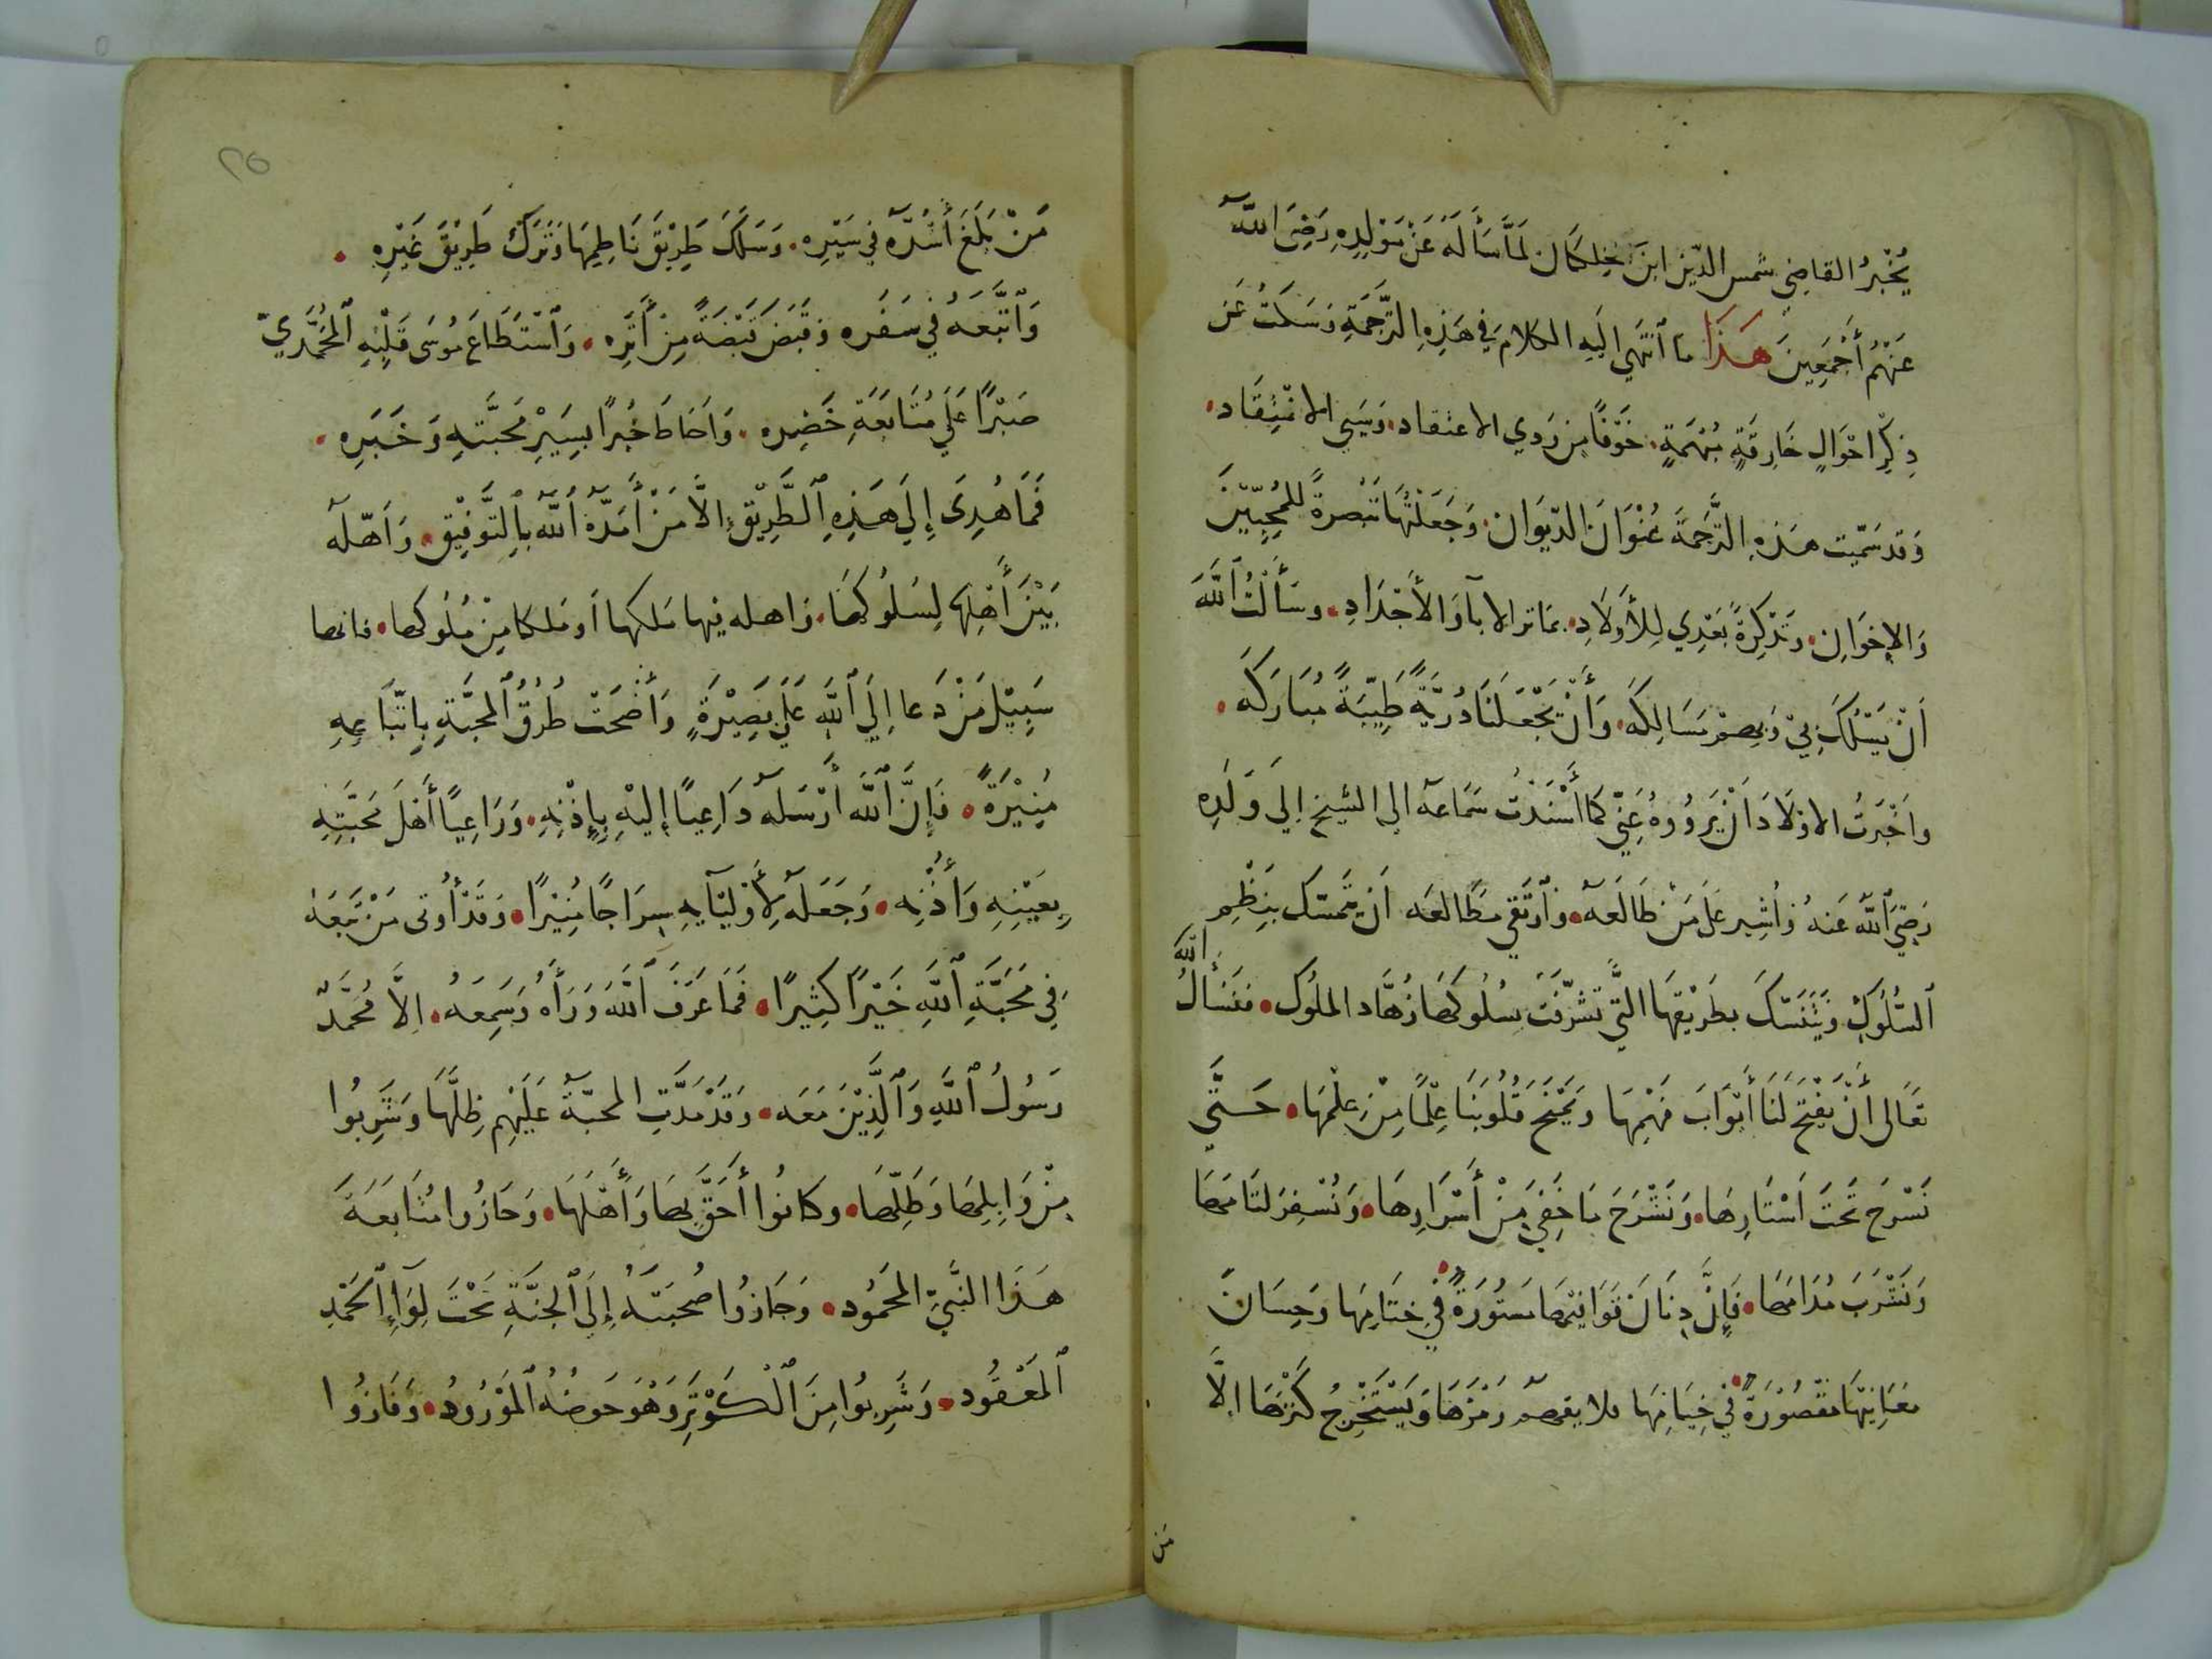 يُخْبِرُ القاضِي شمس الدّين ابنَ خلكان لَمَّا سَأَلَهُ عَنْ مَوْلِدِهِ رَضِيَ اللّه
عَنْهُم أَجْمَعِينَ هَذَا ما ٱنتَهَي اِلَيهِ الكلامُ فِي هَذِهِ الترَّجَمَةِ وَسَكَتُّ عَن
ذِكْرِ احْوَالٍ خَارِقَةٍ مُبْهَمَةٍ خَوْفًا مِن رَدِي الاعتقاد وَسَيِي الانْتِقَاد
وَقد سَمّيت هَذهِ الترَّجَمَةَ عُنْوَانَ الدّيوَان وَجَعَلْتُهَا تَبْصرةً للمُحِبِّيْنَ
وَالإخوَانِ وَتَذْكِرَةً بَعْدِي لِلأَوْلَادِ بمَاثر الابآ وَالأَجْدَادِ وسَأَلْتُ ٱللَّهَ
اَنْ يَسْلُكَ بِيْ وَبِهِمْ مَسَالِكَهُ وَأَنْ يَجْعَلَنَا ذُرِّيَّةً طَيِّبَةً مُبَارَكَه
وَاَخْبَرتُ الاوْلَادَ اَنْ يَرْوُوهُ عَنِّي كَمَا أَسْنَدْتُ سَمَاعَهُ الي الشيخ اِلي وَلَدِه
رَضِيَ ٱللَّهُ عَنهُ وَاُشِير عَلَي مَنْ طَالَعَهُ وَٱرتَقي مطَالعَه اَنْ يَتَمسّك بِنَظْمِ
الله
ٱلسُّلُوكِ وَيَتَنَسَّكَ بِطَرِيْقِهَا الَّتِي تشَرَّفَتْ بِسُلُوكهَا زُهَّاد الملُوك فنَسْأَلُ
تعَالى أَنْ يَفْتَحَ لَنَا أَبْوَابَ فَهْمِهَا وَيَمْنَحَ قُلُوبَنَا عِلْمًا مِنْ عِلْمِهَا حَتَّي
نَسْرَحَ تَحتَ اَسْتَارِهَا وَنَشْرَحَ مَا خَفِيَ مِنْ أَسْرَارِهَا وَنُسْفِرَ لثَامهَا
وَنَشْرَبَ مُدَامَهَا فَإِنَّ دِنَانَ قوَانِيْهَا مَستُورَةٌ فِي خِتَامِهَا وَحِسَانَ
مَعَانِيْهَا مَقْصُوْرَةٌ فِي خِيَامِهَا فلا يفهم رَمْزَهَا وَيَسْتَخْرِجُ كَنْزَهَا الّا
مَن
٢٥
مَنْ بَلَغَ أَشُدَّه فِي سَيْرِه وَسَلَكَ طَرِيْقَ نَاظِمِهَا وَتَرَكَ طَرِيْقَ غَيْرِهِ
وَٱتَّبَعَهُ فِي سَفَرِه وَقَبَضَ قَبْضَةً مِنْ أَثَرِه وَٱسْتَطَاعَ مُوسَى قَلْبِهِ ٱلمُحَمَّدِيّ
صَبْرًا عَلَي مُتَابَعَةِ خَضِره وَاَحَاطَ خُبرًا بسِيَرِ مَحَبَّتِهِ وَخَبَرِه
فَمَا هُدِىَ إِلَي هَذِهِ ٱلطَّرِيْقِ إلَّا مَنْ أَمَدَّهُ ٱللَّه بِالتَّوفِيْق وَاَهّلَه
بَيْنَ أَهْلِهَا لِسُلُوكِهَا وَاهله فيها مَلكها أو مَلكا مِنْ مُلُوكها فانها
سَبِيْلُ مَنْ دَعا اِلَي ٱللَّهِ عَلَي بَصِيْرَةٍ وَأَضْحَتْ طُرُقُ ٱلمحَبَّةِ بِاتّبَاعِهِ
مُنِيْرَةً فَإنَّ ٱللَّه أَرْسَلَه دَاعِيًا إِلَيْهِ بِإِذْنِهِ وَرَاعِيًا أَهْلَ مَحَبَّتِهِ
بِعَيْنِهِ وَأُذْنِه وَجَعَلَهُ لِأَوْلِيَآيهِ سِرَاجًا مُنِيْرًا وَقَدْ أُوتى مَنْ تَبِعَهُ
فِي مَحَبَّةِ ٱللَّهِ خَيْرًا كَثِيرًا فَمَا عَرَفَ ٱللَّهَ وَرَأَهُ وَسَمِعَهُ اِلَّا مُحَمَّدٌ
رَسُولُ ٱللَّهِ وَٱلَّذِيْنَ مَعَه وَقَدْ مَدَّتِ المحبّةُ عَلَيْهِم ظِلَّهَا وَشَرِبُوا
مِنْ وَابِلِهَا وَطَلِّهَا وكانُوا أَحَقَّ بِهَا وَأَهْلَهَا وَحَازُوا مُتَابَعَةَ
هَذَا النَّبِيّ المحَمُود وَجَازُوا صُحبَتَهُ إِلَى ٱلجنَّةِ تَحْتَ لِوَاءِ ٱلحَمْدِ
ٱلمَعْقُود وَشَرِبُوا مِنَ ٱلْكَوْثَرِ وَهْوَ حَوضُهُ ٱلمَوْرُودُ وَفَازُوا